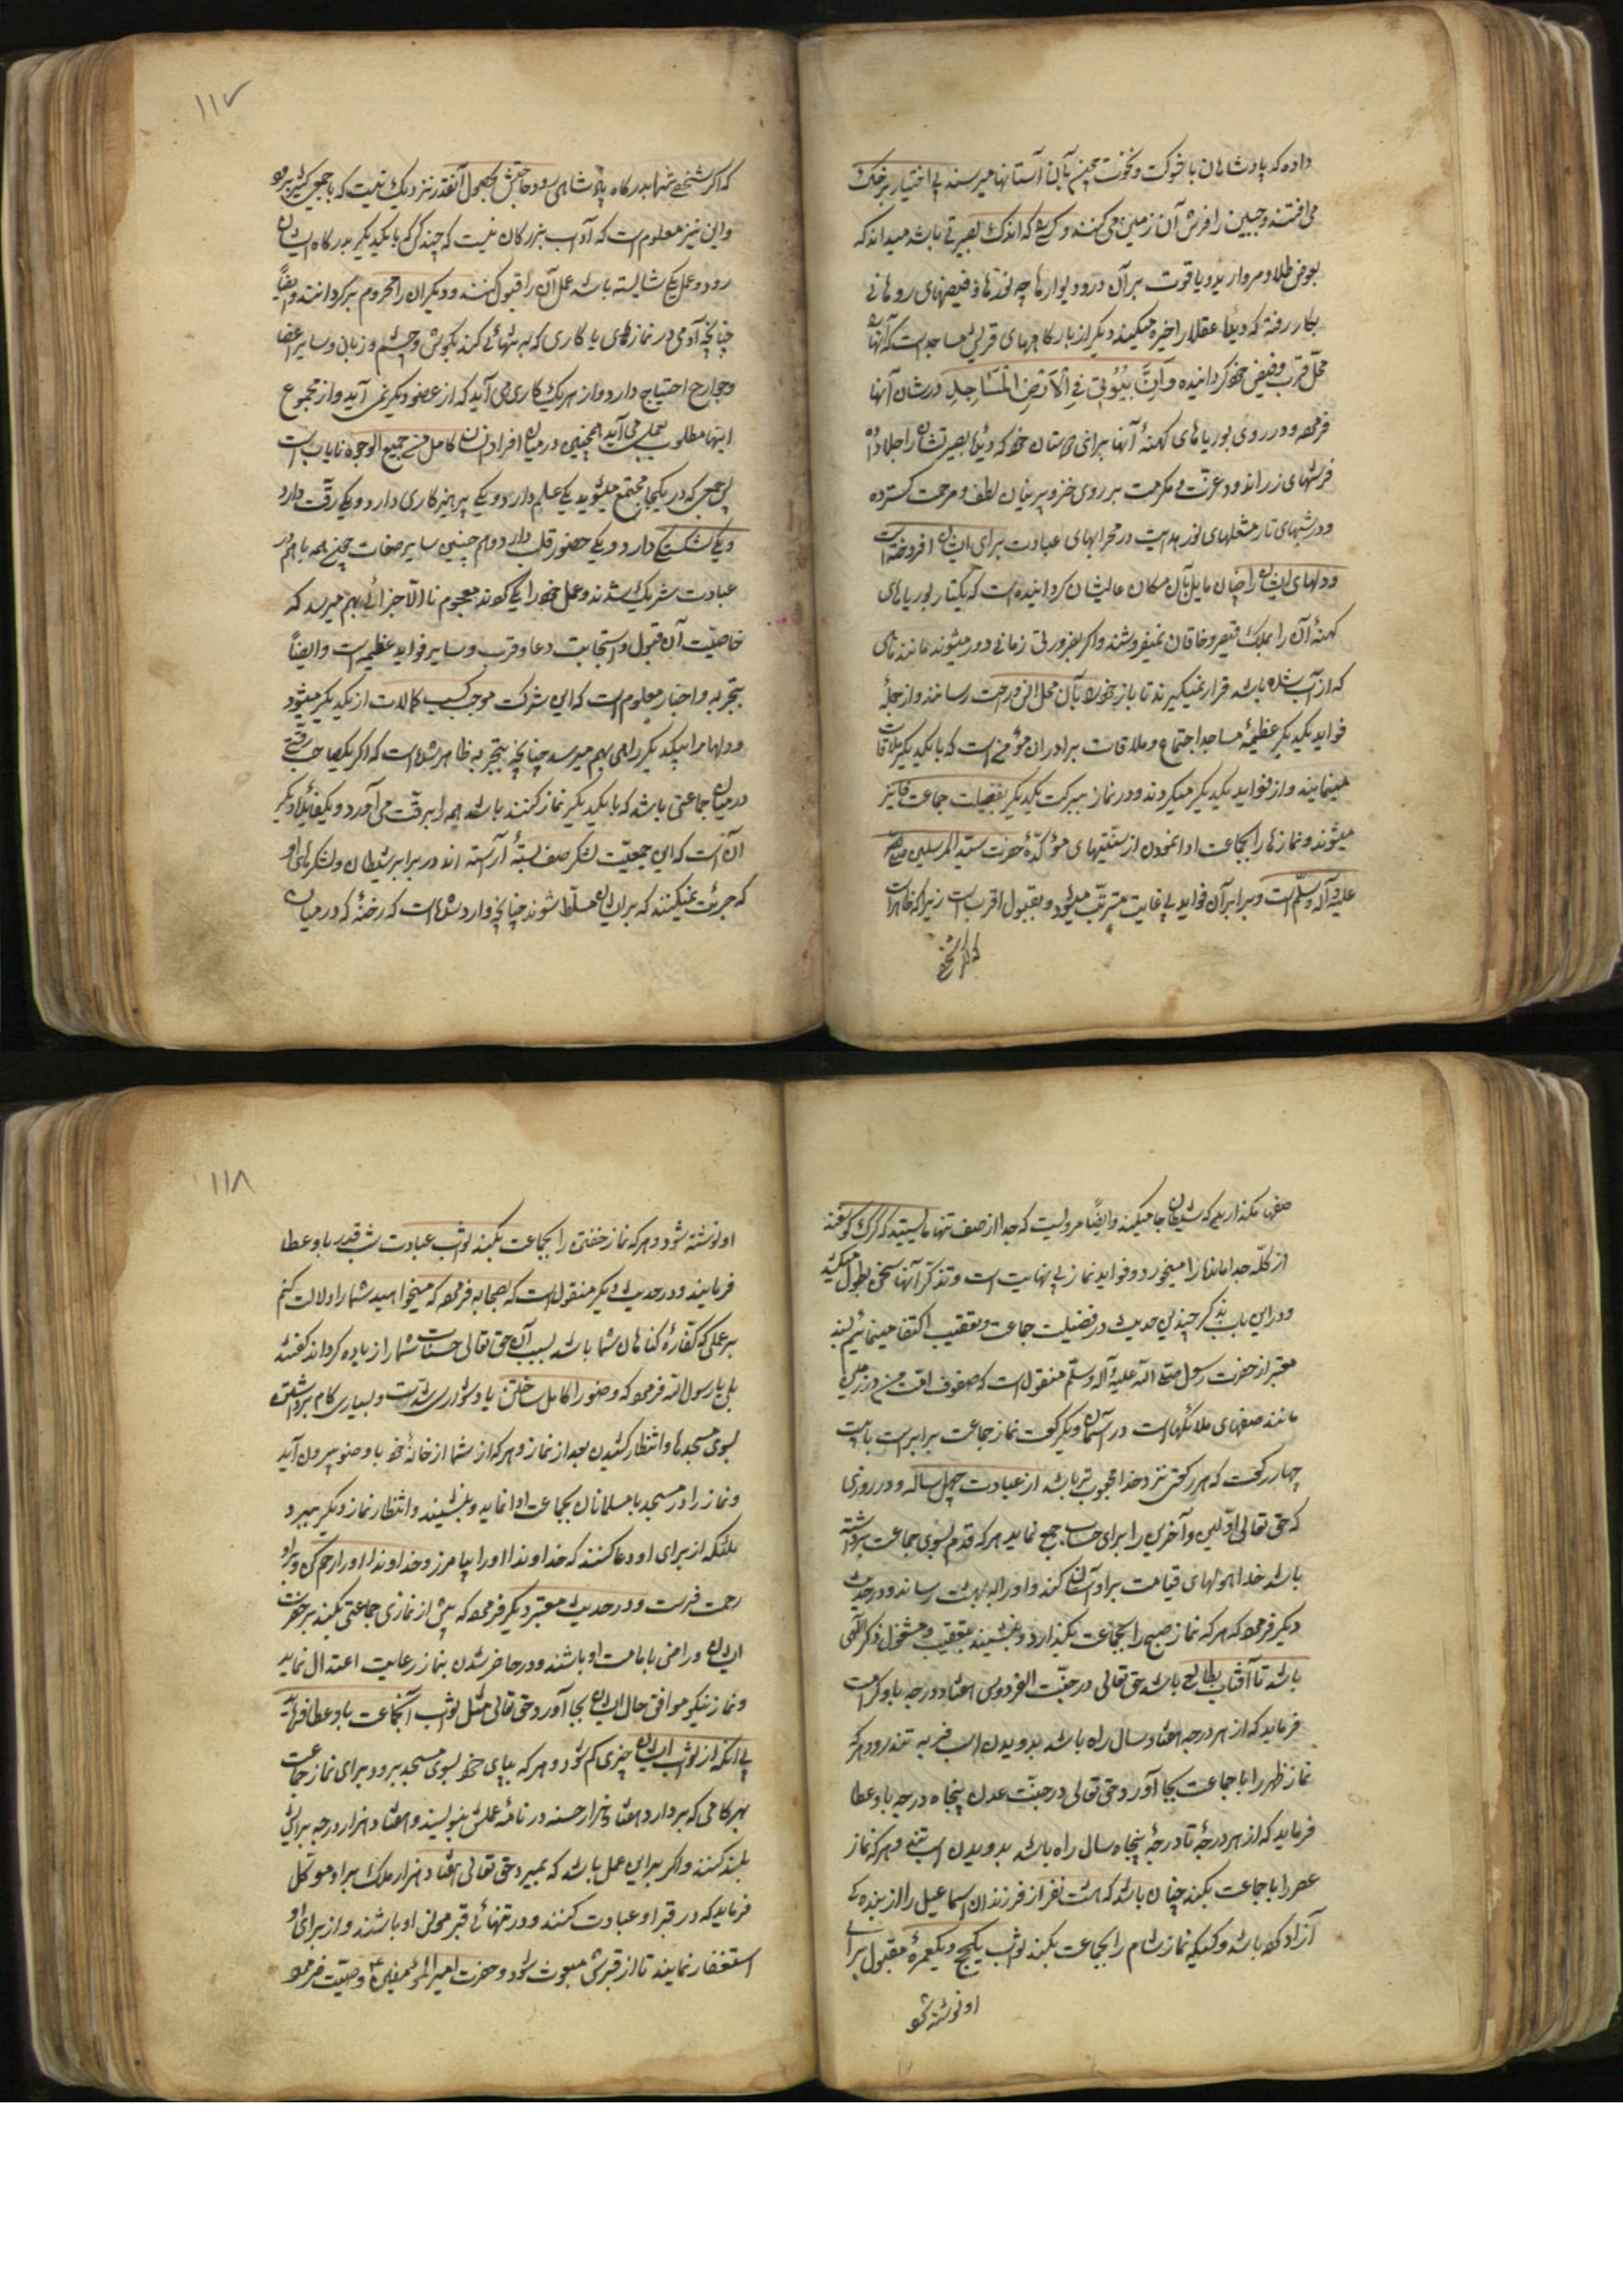 داده که پادشاهان با شوکت و نخوت چون بآن آستانها میرسند بی اختیار بر خاک
می افتند و جبین را فرش آن زمین می کنند و کسی که اندک بصیرتی باشد میداند که
بعوض طلا و مروارید و یاقوت بر آن در و دیوارها چه نورها و فیضهای روحانی
بکار رفته که دیدهٔ عقلا را خیره میکند دیگر از بارگاههای قرب مساجد است که آنها را
محل قرب و فیض خود گردانیده و اَنَّ بُیُوتی فِی الْاَرْضِ الْمَسَاجِد در شان آنها
فرموده و در روی بوریاهای کهنهٔ آنها برای دوستان خود که دیدهای بصیرتشان را جلا داده
فرشهای زراندود عزت و مکرمت بر روی خز و پرنیان لطف و مرحمت گسترده
و در شبهای تار مشعلهای نور هدایت در محرابهای عبادت برای ایشان افروخته است
و دلهای ایشان را چنان مایل بآن مکان عالیشان گردانیده است که یکتار بوریاهای
کهنهٔ آن را بملک قیصر و خاقان نمیفروشند و اگر بضرورتی زمانی دور میشوند مانند ماهی
که از آب شده باشد قرار نمیگیرند تا باز خود را بآن محل انس و رحمت رسانند و از جملهٔ
فواید یکدیگر عظیمهٔ مساجد اجتماع و ملاقات برادران مؤمن است که با یکدیگر ملاقات
مینمایند و از فواید یکدیگر میگردند و در نماز ببرکت یکدیگر بفضیلت جماعت فایز
میشوند و نمازها را بجماعت ادا نمودن از سنتهای مؤکدهٔ حضرت سید المرسلین صلی الله
علیه و آله و سلم است و برابر آن فواید بی غایت مترتب میشود و بقبول اقرب است زیرا که ظاهر است
که اگر شخصی
۱۱۷
که اگر شخصی تنها بدرگاه پادشاهی رود حاجتش بحصول آنقدر نزدیک نیست که با جمع کثیر برود
و این نیز معلوم است که آداب بزرگان نیست که چند کس که با یکدیگر بدرگاه ایشان
رود و عمل یکی شایسته باشد عمل آن را قبول کنند و دیگران را محروم برگردانند و ایضاً
چنانچه آدمی در نمازهای یا کاری که به تنهائی کند بگوش و چشم و زبان و سایر اعضا
و جوارح احتیاج دارد و از هر یک کاری می آید که از عضو دیگر نمی آید و از مجموع
اینها مطلوب بعمل می آید همچنین در میان افراد انسان کامل من جمیع الوجوه نایاب است
پس جمعی که در یکجا مجتمع میشوند یکی علم دارد و یکی پرهیزکاری دارد و یکی رقت دارد
و یکی شکستگی دارد و یکی حضور قلب دارد و هم چنین سایر صفات چون همه با هم در
عبادت شریک شدند و عمل خود را یکی کردند معجوم نام الاجزائی بهم میرسد که
خاصیت آن قبول و استجابت دعا و قرب و سایر فواید عظیمه است و ایضاً
بتجربه و اخبار معلوم است که این شرکت موجب کسب کمالات از یکدیگر میشود
و دلها را بیکدیگر راهی بهم میرسد چنانچه بتجربه ظاهر شده است که اگر یک صاحب رقتی
در میان جماعتی باشد که با یکدیگر نماز کنند باشد همه را برقت می آورد و یک فایدهٔ دیگر
آن است که این جمعیت لشکر صف بستهٔ آراسته اند در برابر شیطان و لشکرهای او
که جرئت نمیکنند که بر ایشان مسلّط شوند چنانچه وارد شده است که رخنهٔ که در میان
صفها مگذارید که شیطان جا میکند و ایضاً مرویست که جدا از صف تنها مایستید که گرگ گوسفند
از گلّه جدا مانده را میخورد و فواید نماز بی نهایت است و تذکر آنها سخن بطول میکشد
و در این باب بذکر چندین حدیث در فضیلت جماعت و تعقیب اکتفا مینمائیم بسند
معتبر از حضرت رسول صلی الله علیه و آله و سلّم منقول است که صفوف امت من در زمین
مانند صفهای ملائکه است در آسمان و یکرکعت نماز جماعت برابر است با بیست
چهار رکعت که هر رکعتی نزد خدا محبوب تر باشد از عبادت چهل ساله و در روزی
که حق تعالی اولین و آخرین را برای حساب جمع نماید هر که قدم بسوی جماعت برداشته
باشد خدا هولهای قیامت بر او آسان کند و او را به بهشت رساند و در حدیث
دیگر فرموده که هر که نماز صبح را بجماعت بگذارد و بنشیند بتعقیب و مشغول ذکر الهی
باشد تا آفتاب طالع باشد حق تعالی در جنّت الفردوس هفتاد درجه باو کرامت
فرماید که از هر درجه هفتاد سال راه باشد بدویدن اسب فربه تندرو و هر که
نماز ظهر را با جماعت بجا آورد حق تعالی در جنّت عدن پنجاه درجه باو عطا
فرماید که از هر درجهٔ تا درجهٔ پنجاه سال راه باشد بدویدن اسب تند و هر که نماز
عصر را با جماعت بکند چنان باشد که هشت نفر از فرزندان اسماعیل را از بنده گی
آزاد کرده باشد و کسیکه نماز شام را بجماعت بکند ثواب یک حج و یک عمرهٔ مقبول برای
او نوشته شود
۱۱۸
او نوشته شود و هر که نماز خفتن را بجماعت بکند ثواب عبادت شب قدر باو عطا
فرمایند و در حدیث دیگر منقول است که بصحابه فرموده که میخواهید شما را دلالت کنم
بر عملی که کفارهٔ گناهان شما باشد بسبب آن حق تعالی حسنات شما را زیاده گرداند گفتند
بلی یا رسول الله فرمود که وضو را کامل ساختن یا دشواری شدت و بسیاری گام برداشتن
بسوی مسجدها و انتظار کشیدن بعد از نماز و هر که از شما از خانهٔ خود با وضو بیرون آید
و نماز را در مسجد با مسلمانان بجماعت ادا نماید و بنشیند و انتظار نماز دیگر ببرد
ملئکه از برای او دعا کنند که خداوندا او را بیامرز و خداوندا او را رحم کن و بر او
رحمت فرست و در حدیث معتبر دیگر فرموده که پیش از نمازی جماعتی بکند بر حضرت
ایشان و راضی با امامت او باشند و در حاضر شدن بنماز رعایت اعتدال نماید
و نماز نیکو موافق حال ایشان بجا آورد حق تعالی مثل ثواب آنجماعت باو عطا فرماید
بی آنکه از ثواب ایشان چیزی کم شود و هر که بپای خود بسوی مسجد برود برای نماز جماعت
بهر گامی که بردارد هفتاد هزار حسنه در نامهٔ عملش بنویسند و هفتاد هزار درجه برایش
بلند کنند و اگر بر این عمل باشد که بمیرد حق تعالی هفتاد هزار ملک بر او موکل
فرماید که در قبر او عبادت کنند و در تنهائی قبر مونس او باشند و از برای او
استغفار نمایند تا از قبرش مبعوث شود و حضرت امیر المؤمنین ع وصیت فرمود